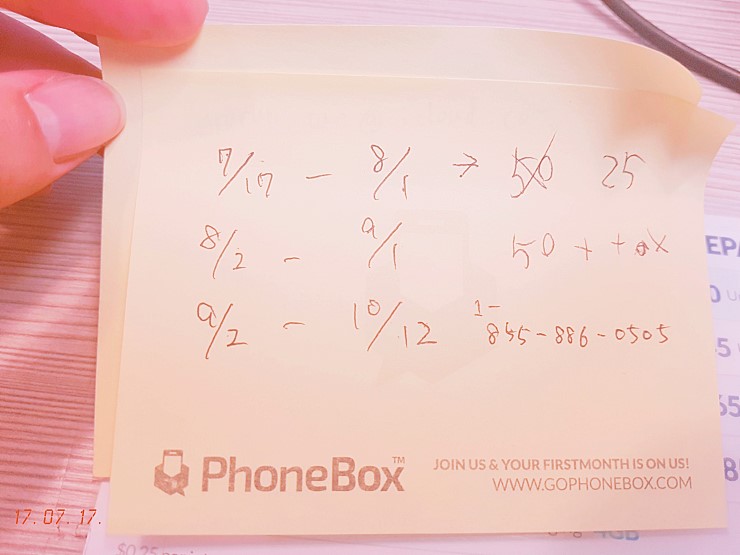 7/17 - 8/1 → 50 25
8/2 - 9/1 50 + tax
9/2 - 10/12 1-
845-886-0505
PhoneBox™
JOIN US & YOUR FIRSTMONTH IS ON US!
WWW.GOPHONEBOX.COM
17. 07. 17.
EPA
5
65
8
$0.25
4GB